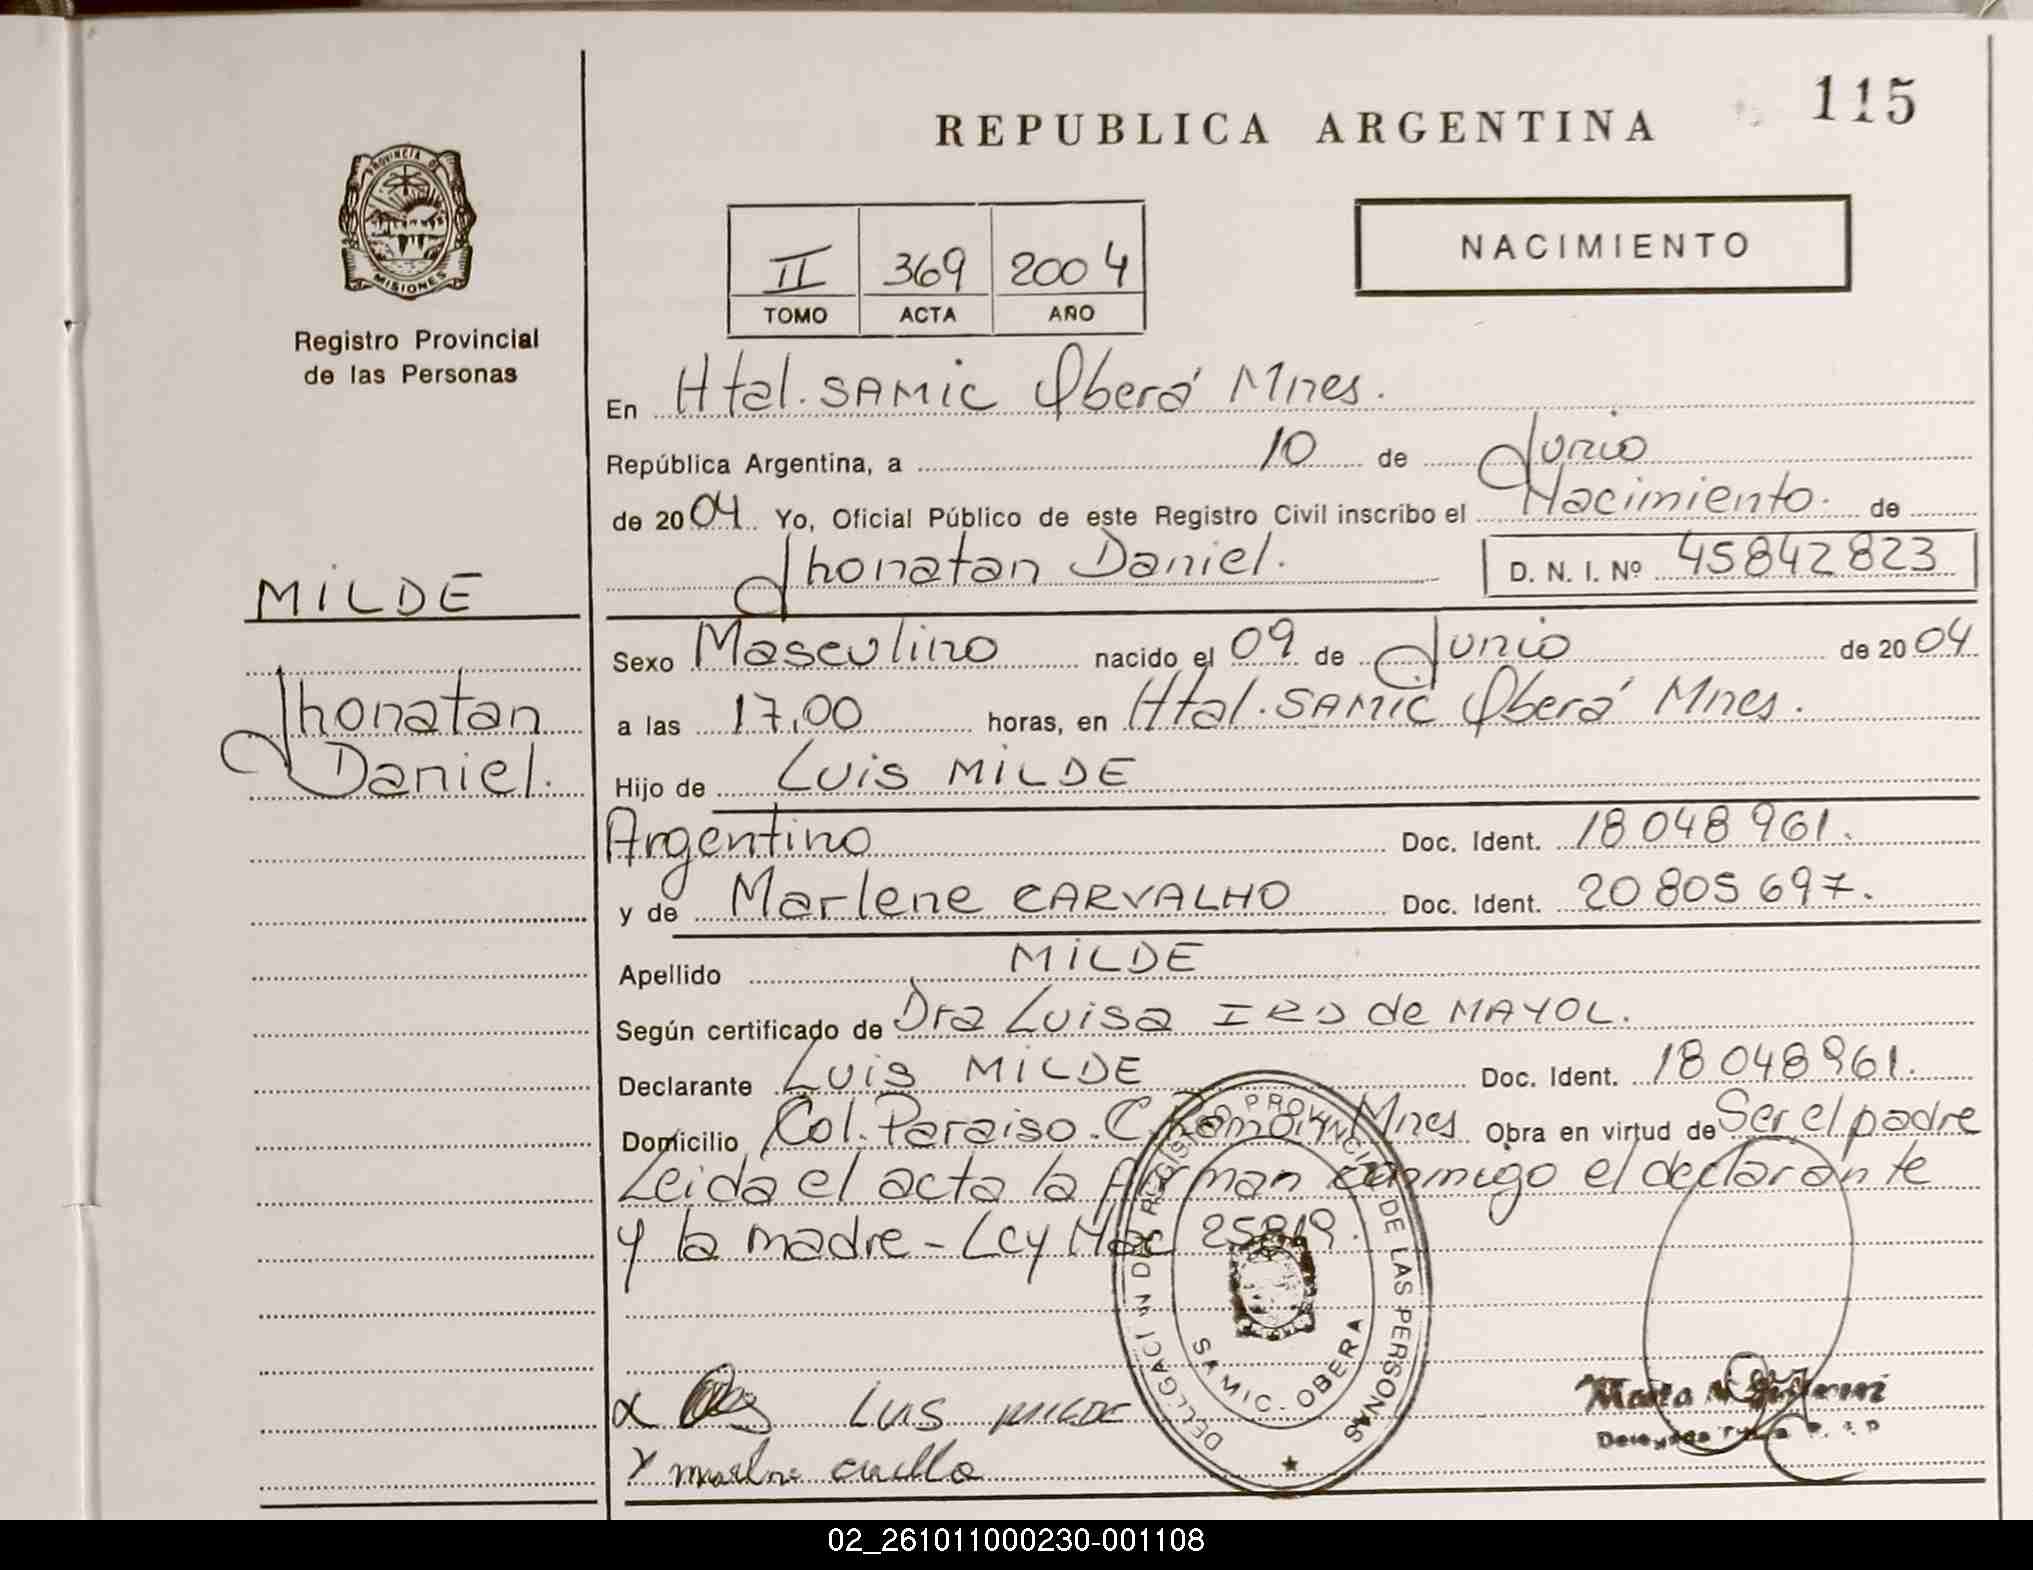 115
REPUBLICA ARGENTINA
PROVINCIA DE
MISIONES
Registro Provincial
de las Personas
II 369 2004
TOMO ACTA AÑO
NACIMIENTO
En Htal. SAMIC Oberá Mnes.
República Argentina, a 10 de Junio
de 2004 Yo, Oficial Público de este Registro Civil inscribo el Nacimiento de
Jhonatan Daniel. D. N. I. Nº 45842823
MILDE
Jhonatan
Daniel.
Sexo Masculino nacido el 09 de Junio de 2004
a las 17,00 horas, en Htal. SAMIC Oberá Mnes.
Hijo de Luis MILDE
Argentino Doc. Ident. 18048961.
y de Marlene CARVALHO Doc. Ident. 20805697.
Apellido MILDE
Según certificado de Dra Luisa de MAYOL.
Declarante Luis MILDE Doc. Ident. 18048961.
Domicilio Col. Paraiso. C. Ramón Mnes Obra en virtud de Ser el padre
Leida el acta la firman conmigo el declarante
y la madre - Ley Nac
DELEGACI N DEL REGISTRO PROVINCIAL DE LAS PERSONAS
SAMIC - OBERA
Luis MILDE
02_261011000230-001108